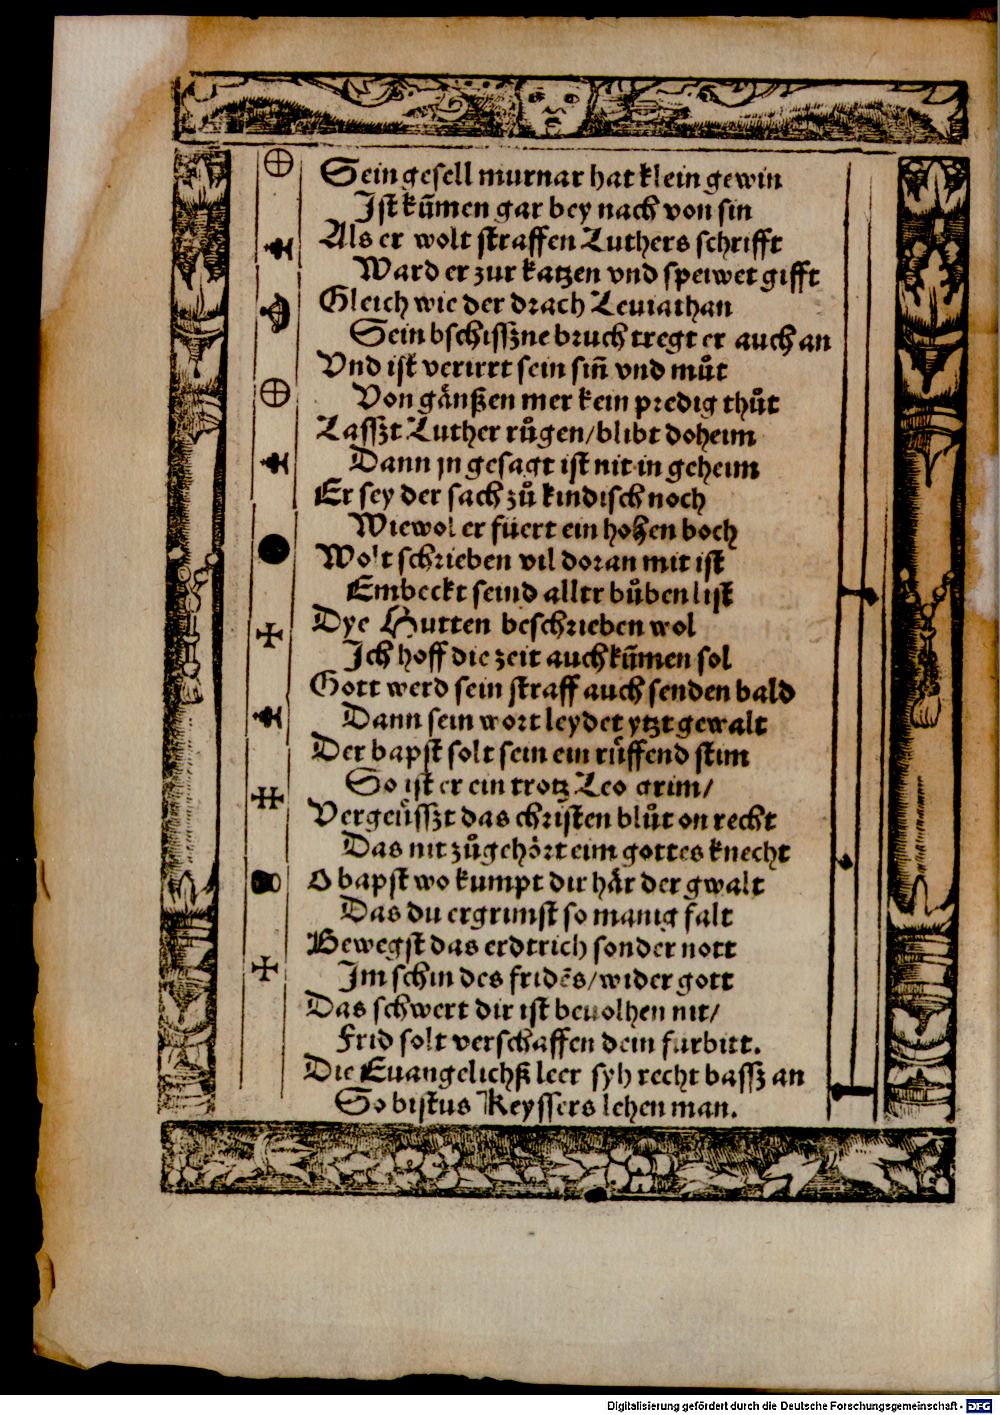 Sein gesell murnar hat klein gewin
Ist kūmen gar bey nach von sin
Als er wolt straffen Luthers schrifft
Ward er zur katzen vnd speiwet gifft
Gleich wie der drach Leuiathan
Sein bschisszne bruch tregt er auch an
Vnd ist verirrt sein siñ vnd můt
Von gänßen mer kein predig thůt
Lasszt Luther růgen/blibt doheim
Dann jn gesagt ist nit in geheim
Er sey der sach zů kindisch noch
Wiewol er füert ein hohen boch
Wolt schrieben vil doran mit ist
Embeckt seind alltr bůben list
Dye Hutten beschrieben wol
Ich hoff die zeit auch kūmen sol
Gott werd sein straff auch senden bald
Dann sein wort leydet ytzt gewalt
Der bapst solt sein ein rüffend stim
So ist er ein trotz Leo grim/
Vergeüsszt das christen blůt on recht
Das nit zůgehört eim gottes knecht
O bapst wo kumpt dir här der gwalt
Das du ergrimst so manig falt
Bewegst das erdtrich sonder nott
Im schin des fridēs/wider gott
Das schwert dir ist beuolhen nit/
Frid solt verschaffen dein furbitt.
Die Euangelichß leer syh recht bassz an
So bistus Keyssers lehen man.
Digitalisierung gefördert durch die Deutsche Forschungsgemeinschaft - DFG